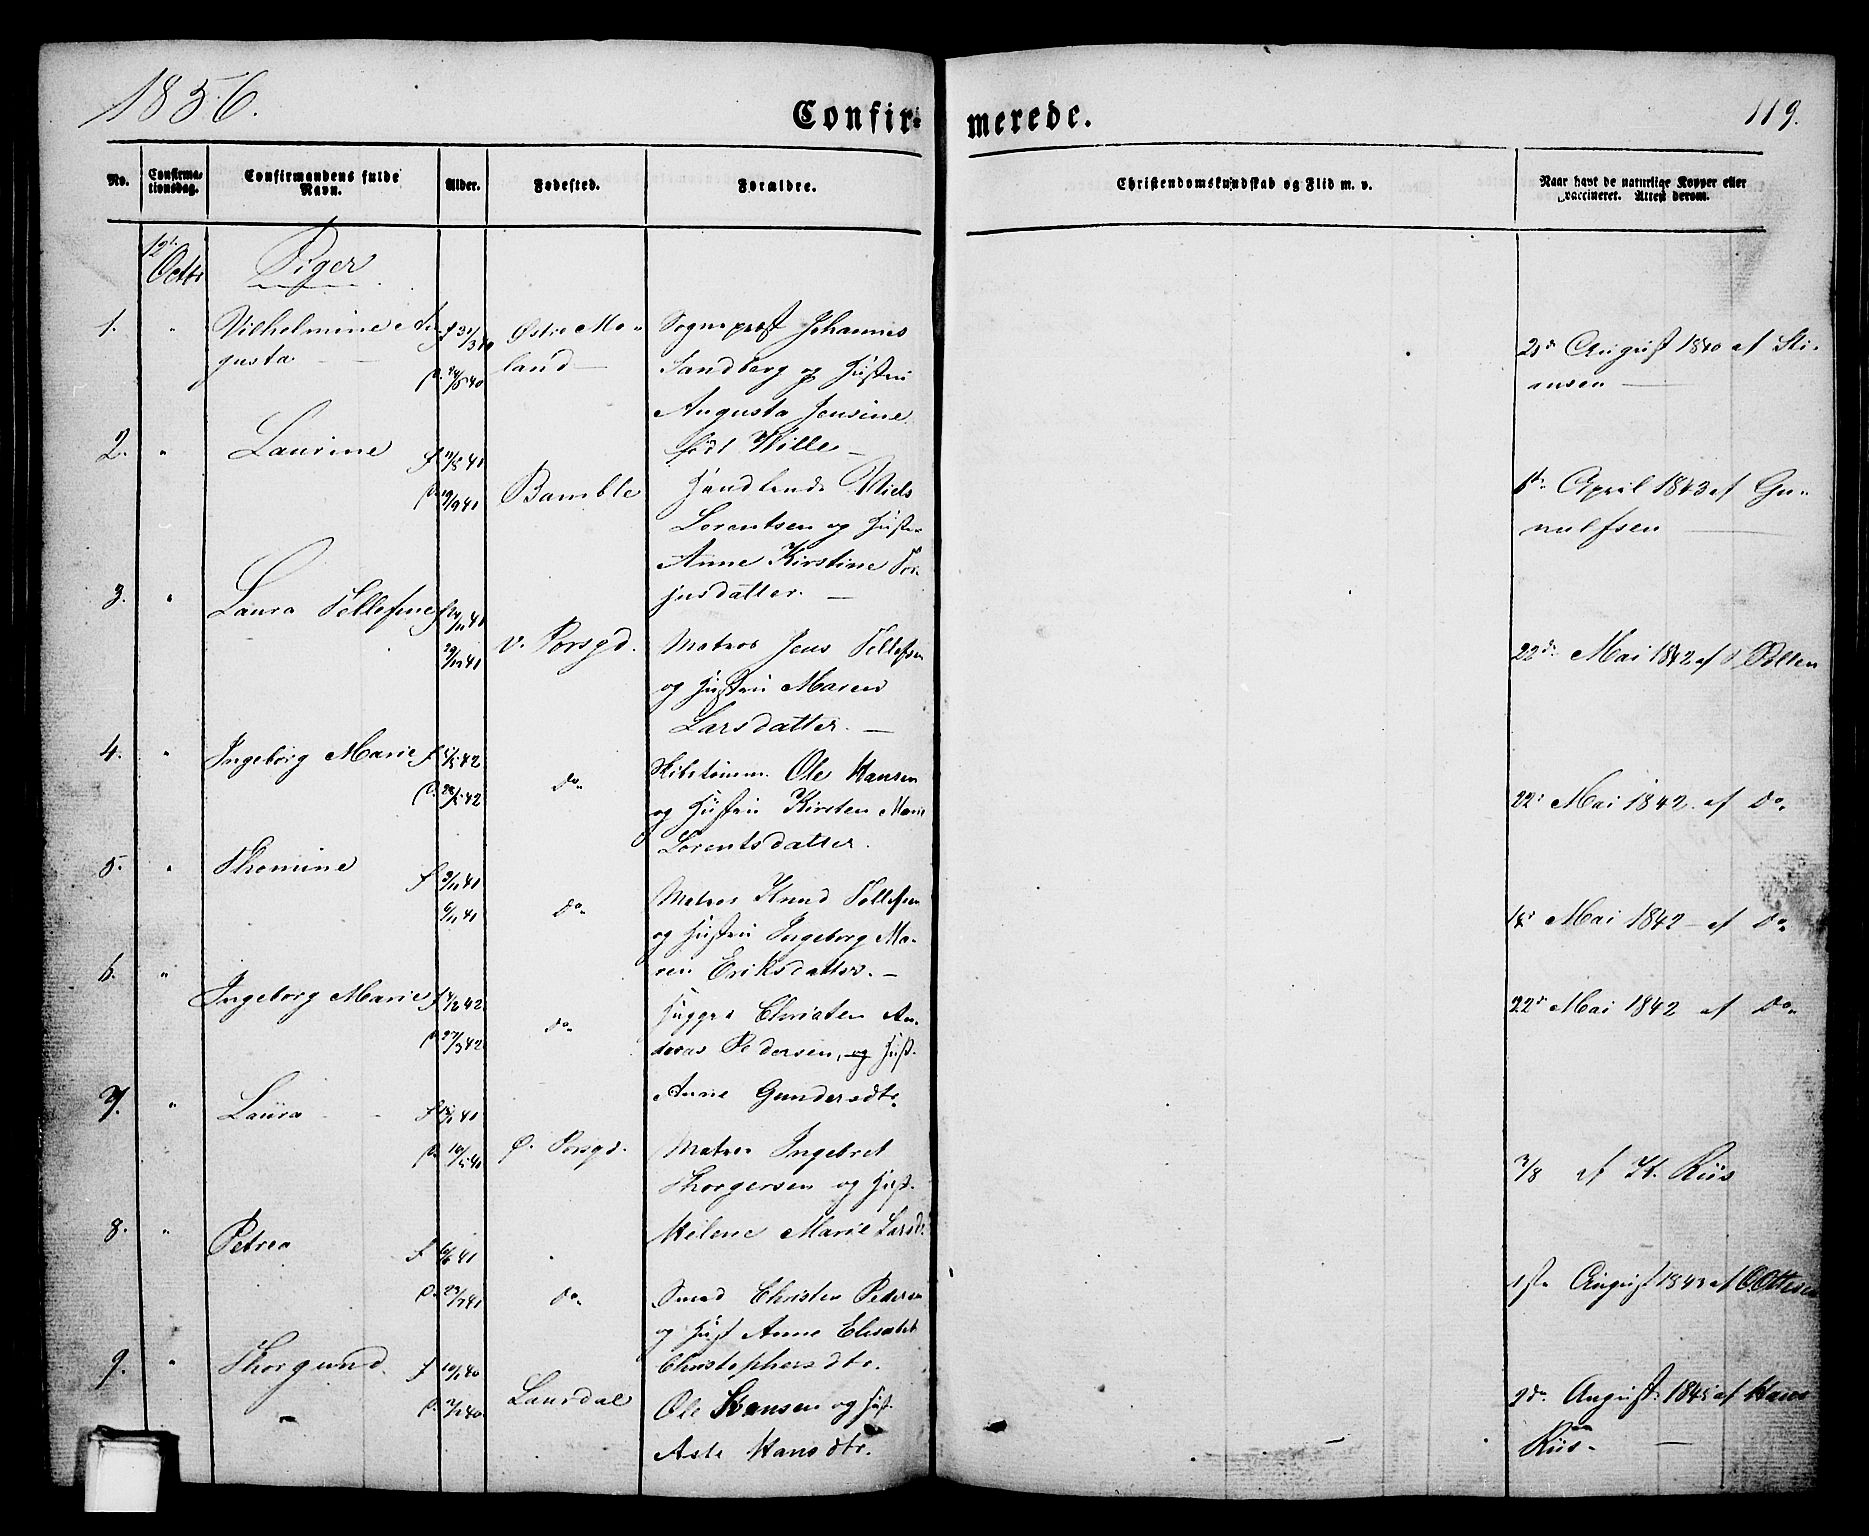 1856.
Confir- merede.
119.
No.
Confirma-
tionsdag.
Confirmandens fulde
Navn.
Alder.
Fødested.
Forældre.
Christendomskundskab og Flid m. v.
Naar havt de naturlige Kopper eller
vaccineret. Attest derom.
12te
Octbr
Piger
1. " Vilhelmine Au-
gusta
f
Østre Mo-
land
Sognepræst Johannes
Sandberg og Hustru
Augusta Jensine
født Wille
August 1840 af
ansen
2. " Laurine f 11/5 41
D. 19/9 41
Bamble
Handlende Niels
Lorentsen og Hustru
Anne Kirstine Tor-
jusdatter.
April 1843 af Gu-
nulfsen
3. " Laura Tellefine f
V. Porsgd.
Matros Jens Tellefsen
og Hustru Maren
Larsdatter.
22de Mai 1842 af
4. " Ingeborg Marie f
Do
Skibstømm. Ole Hansen
og Hustru Kirsten Marie
Lorentsdatter.
22d Mai 1842 af Do
5. " Thomine f
Do
Matros Knud Tellefsen
og Hustru Ingeborg Ma-
ren Eriksdatter.
Mai 1842 af Do
6. " Ingeborg Marie f
D. 27/3 42
Do
Christen An-
dreas Pedersen, og Hust.
Anne Gundersdtr
22d Mai 1842 af Do
7. " Laura f
Ø. Porsgd.
Matros Ingebret
Thorgersen og Hust.
Helene Marie Larsd
af H. Riis
8. " Petrea f
Do
Smed Christen Pedersen
og Hust Anne Elisabet
Christophersdtr.
1ste August 1843 af O. Ottesen
9. " Thorgund. f
Laurdal
Ole Hansen og Hust.
Aste Hansdtr.
2de August 1845 af Hans
Riis